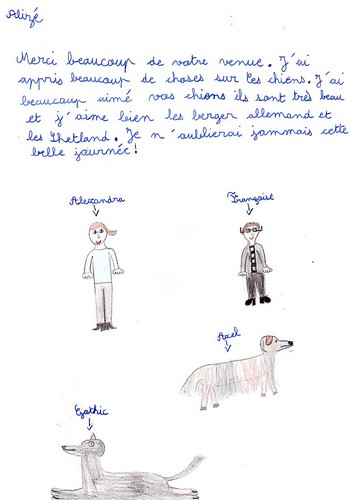 Alizé
Merci beaucoup de votre venue. J'ai
appris beaucoup de choses sur les chiens. J'ai
beaucoup aimé vos chions ils sont très beau
et j'aime bien les berger allemand et
les Shetland. Je n'aublierai jammais cette
belle journée!
Alexandra
Françoise
Axel
Gothic